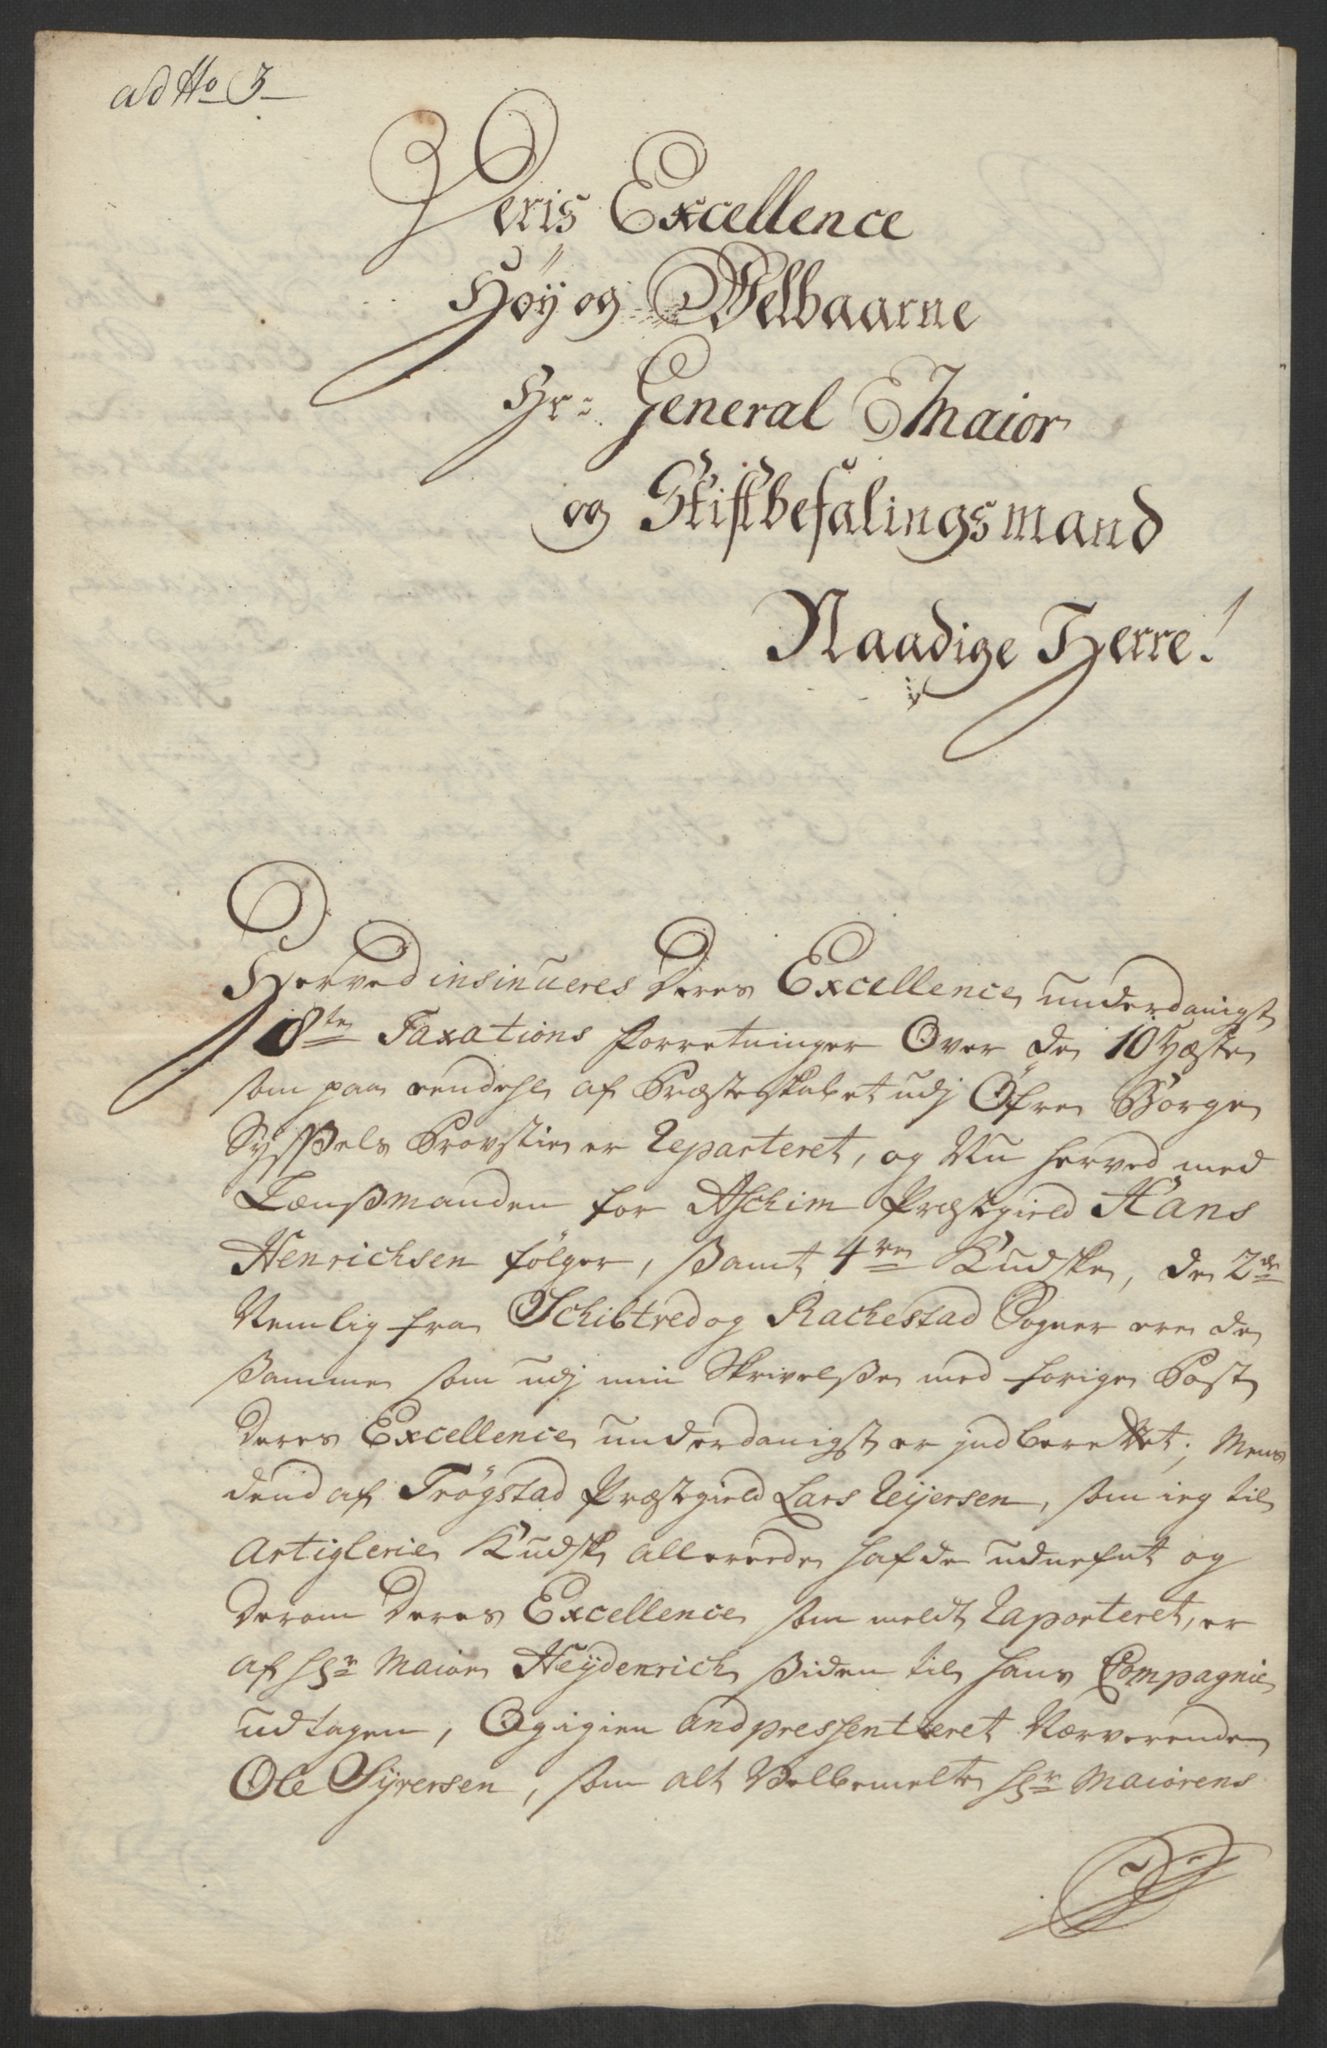 ad No 3
Deris Excellence
Høÿ og Velbaarne
Hr: General Maior
og Stiftbefalingsmand
Naadige Herre!
Herved insinueres Deres Excellence underdanigst
8te Taxations Forretninger Over de 10 Hæste
som paa eendehl af Præsteskabet udj Öfre Borge
Syssels Provstie er Reparteret, og Nu herved med
Lænßmanden for Aschim Præstgield Hans
Henrichsen følger, samt 4re Kudske, de 2de
Nemlig fra Schibtved og Rachestad Sogner ere de
samme som udj min Skrivelße med forige Post
Deres Excellence underdanigst er jndberettet; Mens
dend af Trøgstad Præstgield Lars Reÿersen, som ieg til
Artiglerie Kudsk allereede hafde udnefnt og
derom Deres Excellence som meldt Raporteret, er
af Hr Maior Heÿdenrich siden til hans Compagnie
udtagen, Og igien andpressentteret Nærverende
Ole Sÿversen, som alt Velbemelte Hr Maiorens